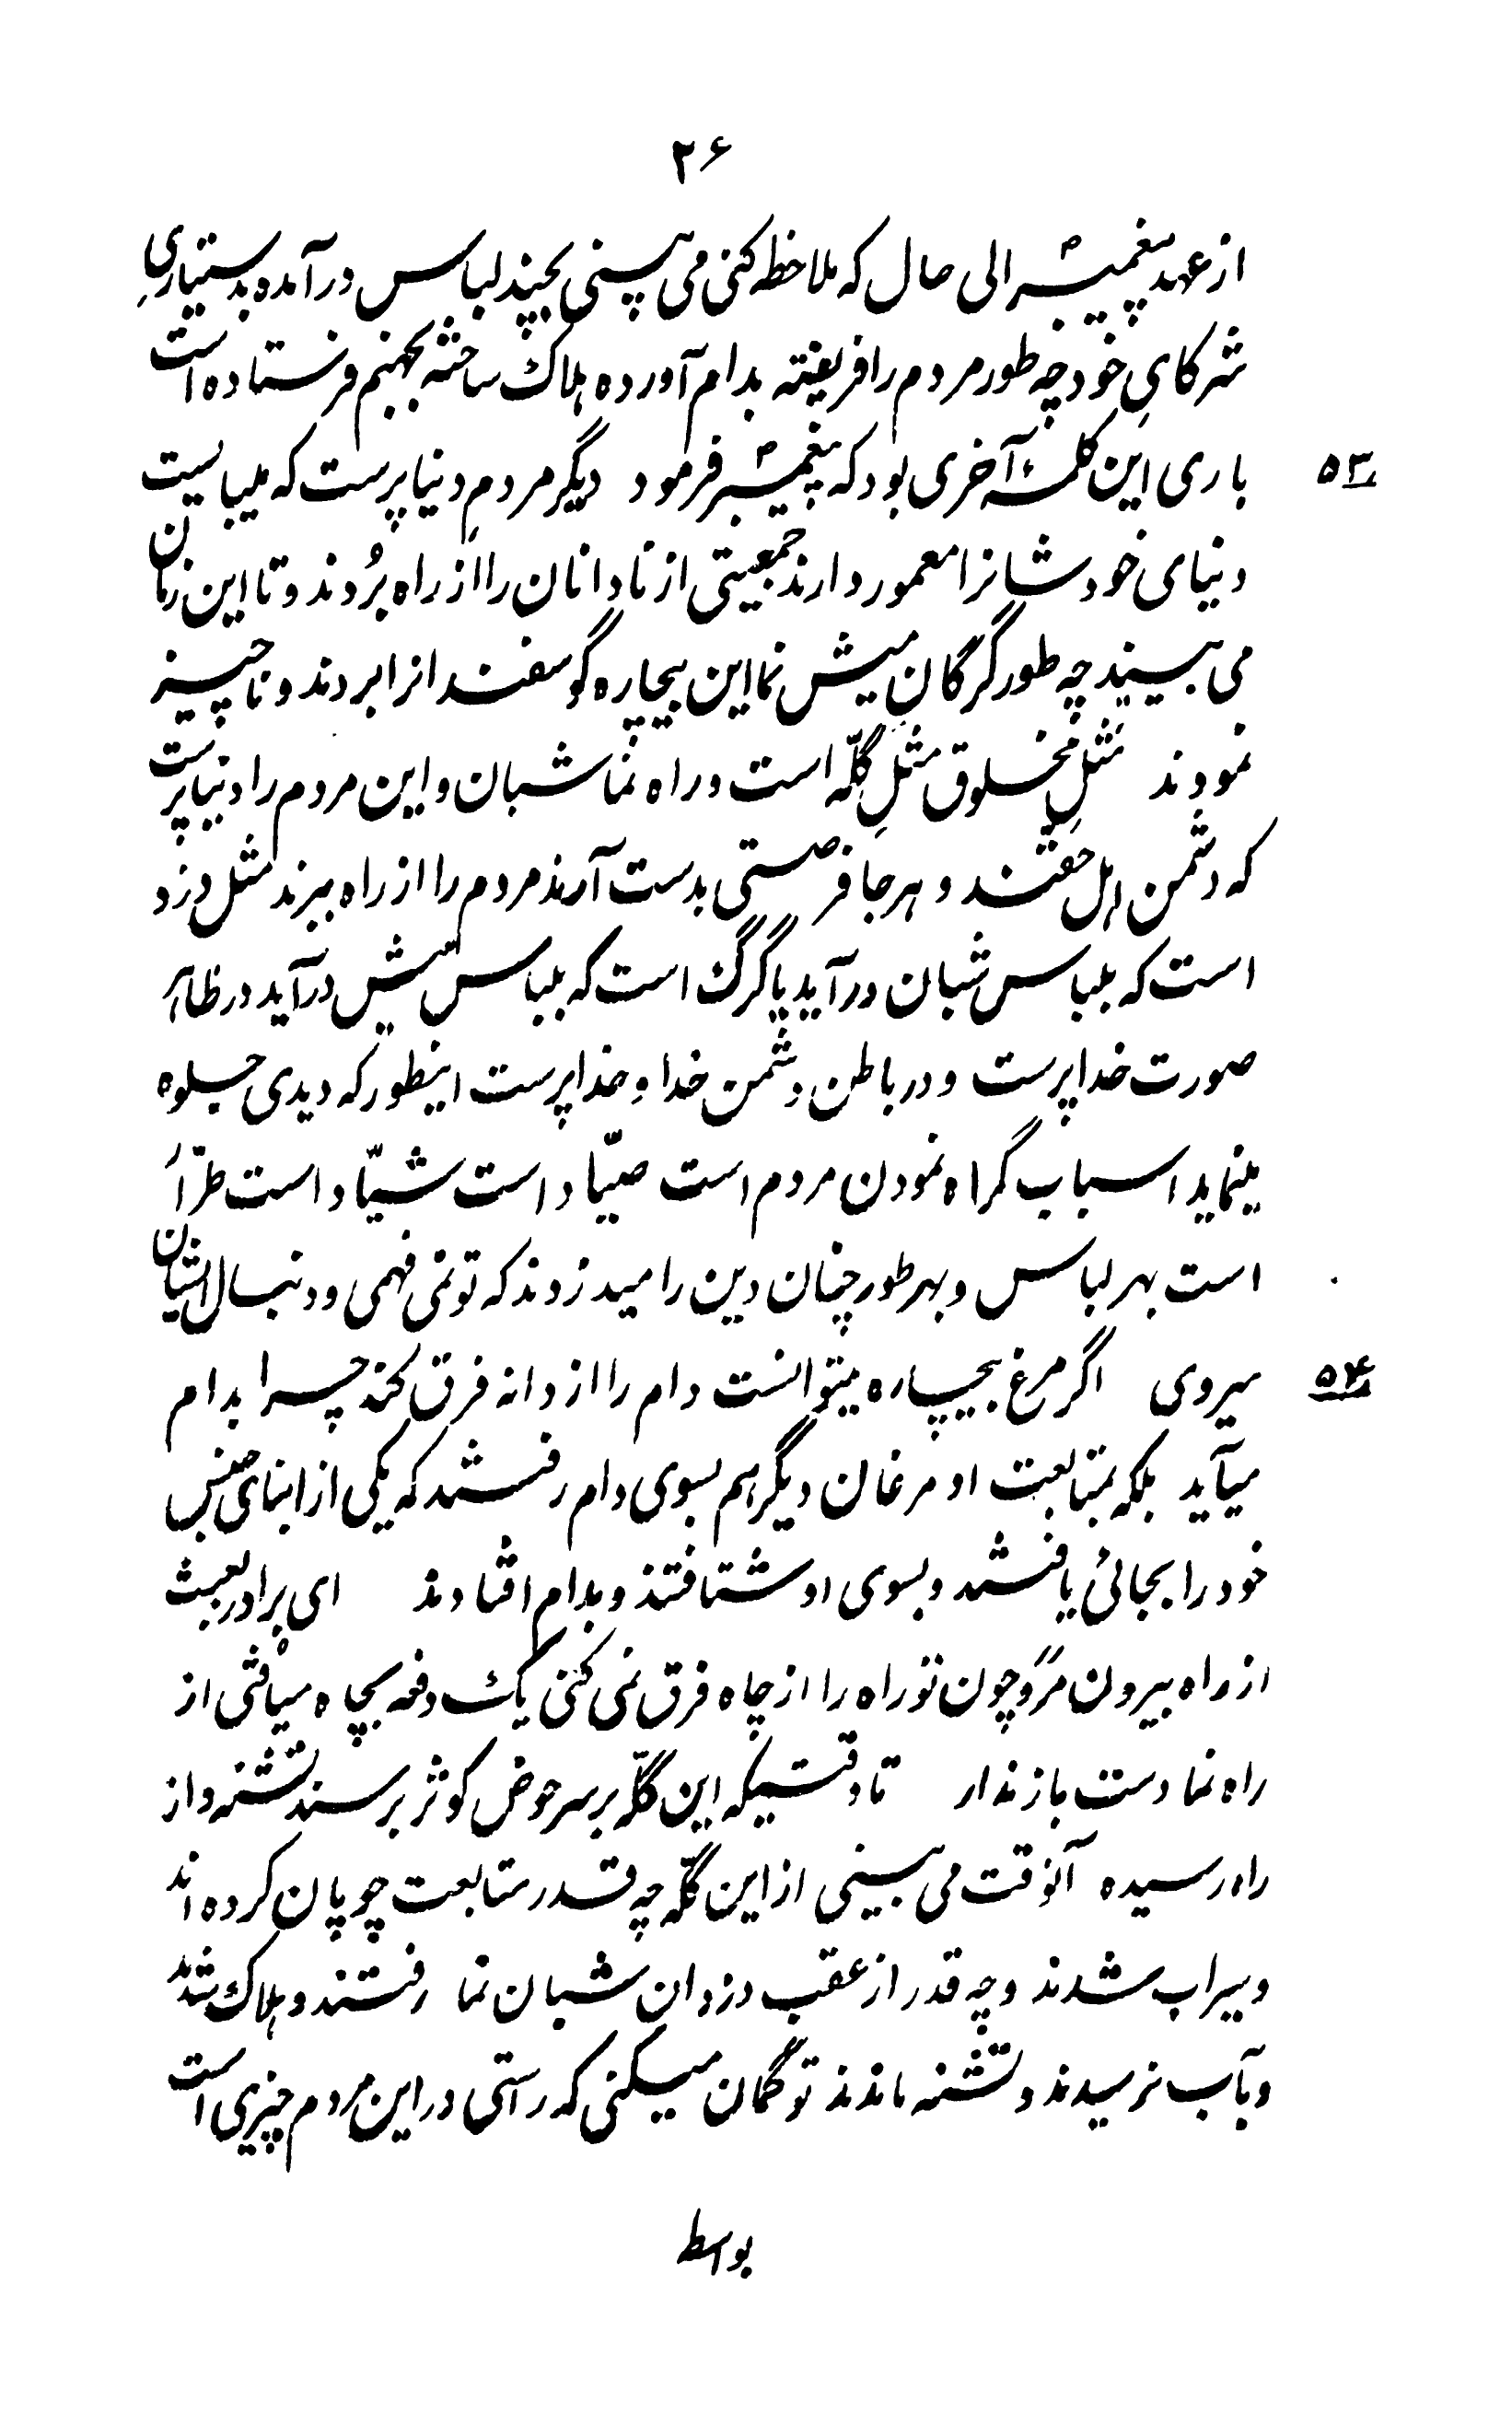 ۲۶
از عهد پیغمبرص الی حال که ملاحظه کنی می بینی بچند لباس در آمده بدستیاریِ
شرکایِ خود چه طور مردم را فریفته بدام آورده هلاک ساخته بجهنم فرستاده است
۵۳ باری این کلمهٔ آخری بود که پیغمبرص فرمود دیگر مردم دنیا پرست که میبایست
دنیای خودشانرا معمور دارند جمعیتی از نادانان را از راه بُردند و تا این زمان
می بینید چه طور گرگانِ میش نما این بیچاره گوسفندانرا بردند و ناچیز
نمودند مَثَلِ مخلوق مَثَلِ گلّه است و راه نما شبان و این مردم را دنیاپرست
که دشمن اهل حقند و هر جا فرصتی بدست آرند مردم را از راه ببرند مثل دزد
است که بلباس شبان درآید یا گرگ است که بلباس میش درآید در ظاهر
صورت خدا پرست و در باطن دشمن خدا و خدا پرست اینطور که دیدی جلوه
مینماید اسباب گمراه نمودن مردم است صیّاد است شیّاد است طرّار
است بهر لباس و بهر طور چنان دین را میدزدند که تو نمی فهمی و دنبال ایشان
۵۴ میروی اگر مرغ بیچاره میتوانست دام را از دانه فرق کند چرا بدام
میآید بلکه بمتابعت او مرغان دیگر هم بسوی دام رفتند که یکی از ابنای جنس
خود را بجائی یافتند و بسوی او شتافتند و بدام افتادند ای برادر بعبث
از راه بیرون مَرَو چون تو راه را از چاه فرق نمی کنی یک دفعه بچاه میافتی از
راه نما دست باز ندار تا وقتیکه این گلّه بر سر حوض کوثر برسند تشنه و از
راه رسیده آنوقت می بینی از این گلّه چه قدر متابعت چوپان کرده اند
و سیراب شدند و چه قدر از عقب دزدان شبان نما رفتند و هلاک شدند
و بآب نرسیدند و تشنه ماندند تو گمان میکنی که راستی در این مردم چیزی است
بواسط